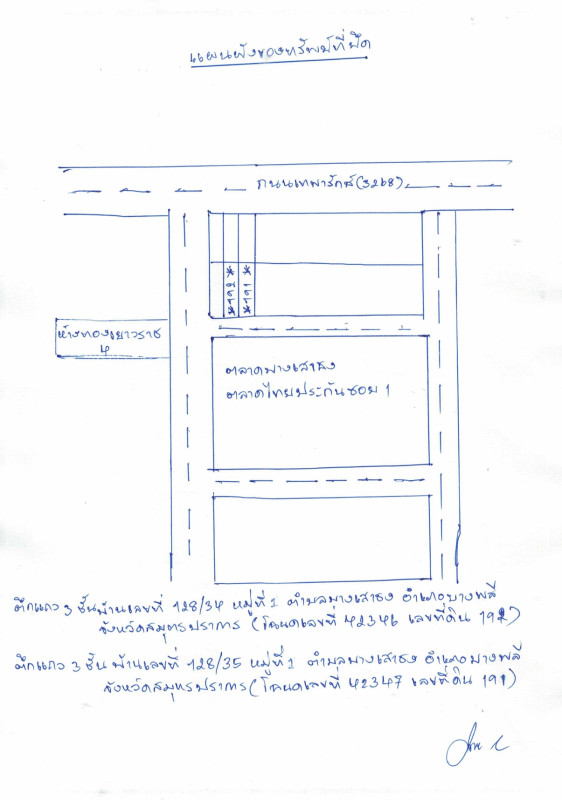 แผนผังของทรัพย์ที่ยึด
ถนนเทพารักษ์(3268)
*192*
*191*
ห้างทองเยาวราช
4
ตลาดบางเสาธง
ตลาดไทยประกันซอย 1
ตึกแถว 3 ชั้นบ้านเลขที่ 128/34 หมู่ที่ 1 ตำบลบางเสาธง อำเภอบางพลี
จังหวัดสมุทรปราการ (โฉนดเลขที่ 42346 เลขที่ดิน 192)
ตึกแถว 3 ชั้น บ้านเลขที่ 128/35 หมู่ที่ 1 ตำบลบางเสาธง อำเภอบางพลี
จังหวัดสมุทรปราการ (โฉนดเลขที่ 42347 เลขที่ดิน 191)